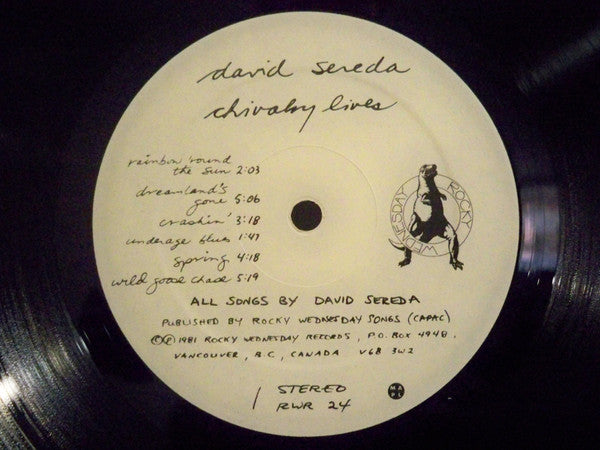 david sereda
chivalry lives
rainbow 'round
the sun 2:03
dreamland's
gone 5:06
crashin' 3:18
underage blues 1:47
spring 4:18
wild goose chase 5:19
WEDNESDAY ROCKY
ALL SONGS BY DAVID SEREDA
PUBLISHED BY ROCKY WEDNESDAY SONGS (CAPAC)
©℗1981 ROCKY WEDNESDAY RECORDS, P.O. BOX 4948,
VANCOUVER, B.C., CANADA V6B 3W2
1 STEREO
RWR 24
MAPL